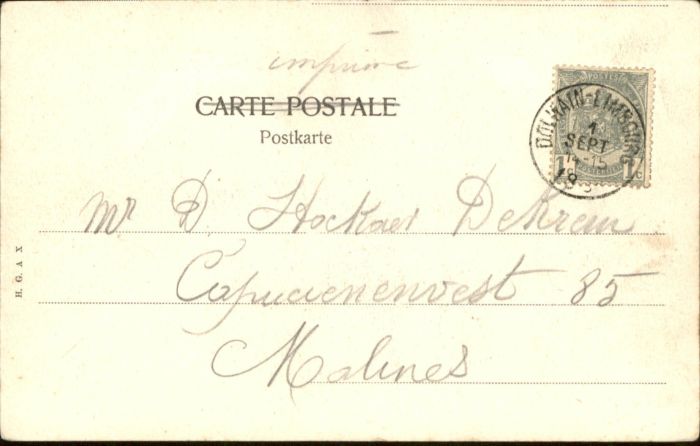 imprimé
CARTE POSTALE
Postkarte
DOLHAIN-LIMBOURG
1
SEPT
14-15
POSTES
1 c
Mr D. Stockaer DeKrem
Capucienenvest 85
Malines
H. G. A X